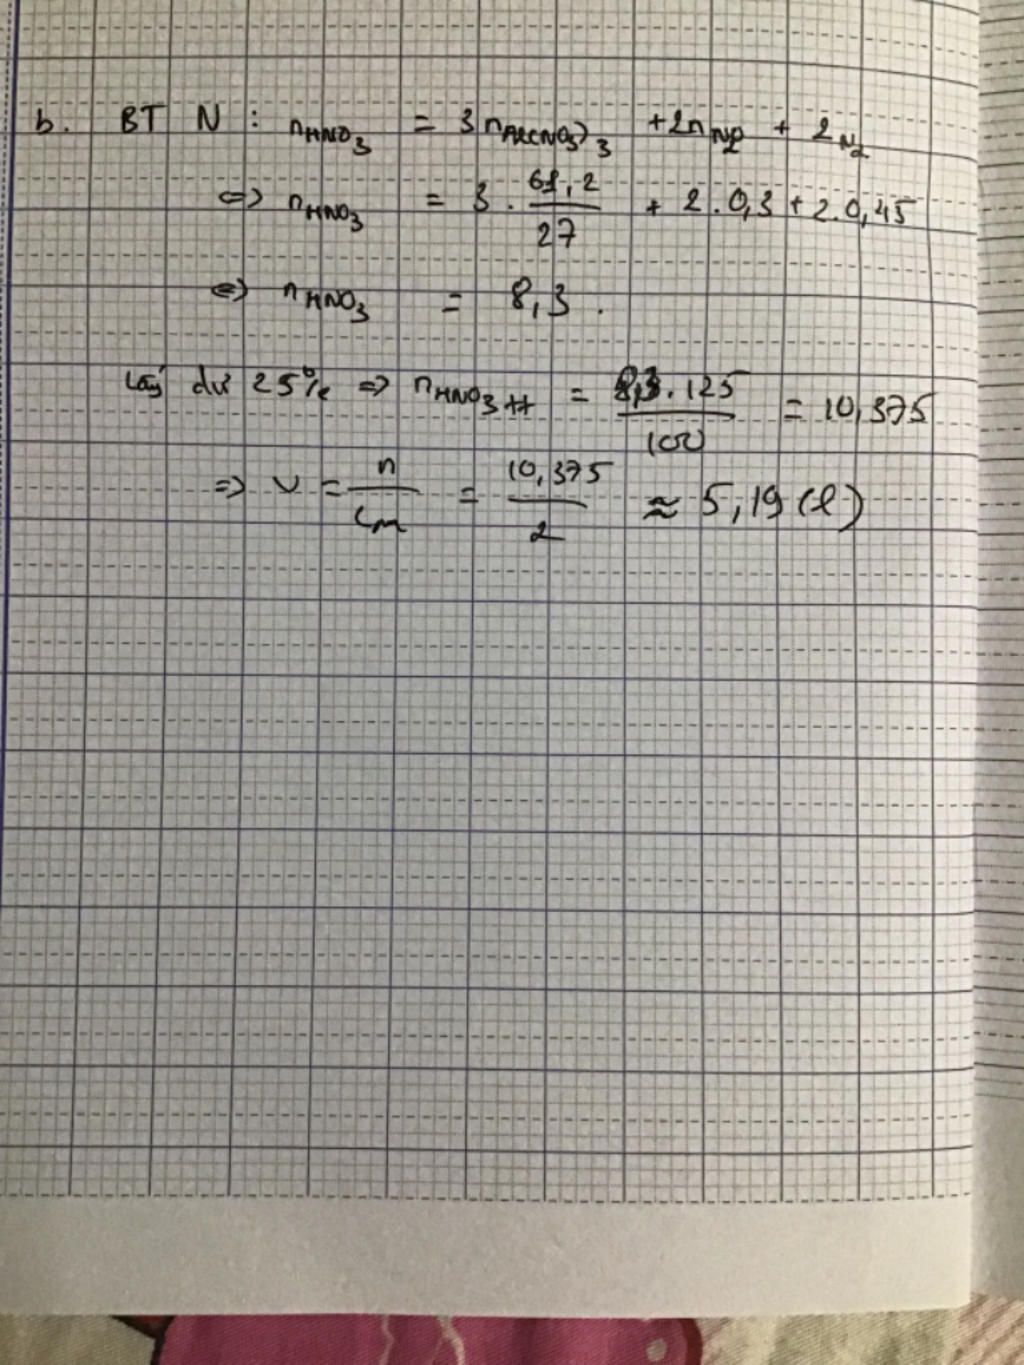 b. BT N : nHNO3 = 3 nAl(NO3)3 + 2nN2O + 2N2
<=> nHNO3 = 3 . 61,2/27 + 2 . 0,3 + 2.0,45
<=> nHNO3 = 8,3 .
Lấy dư 25% => nHNO3 tt = 8,3 . 125/100 = 10,375
=> V = n/CM = 10,375/2 ≈ 5,19 (l)